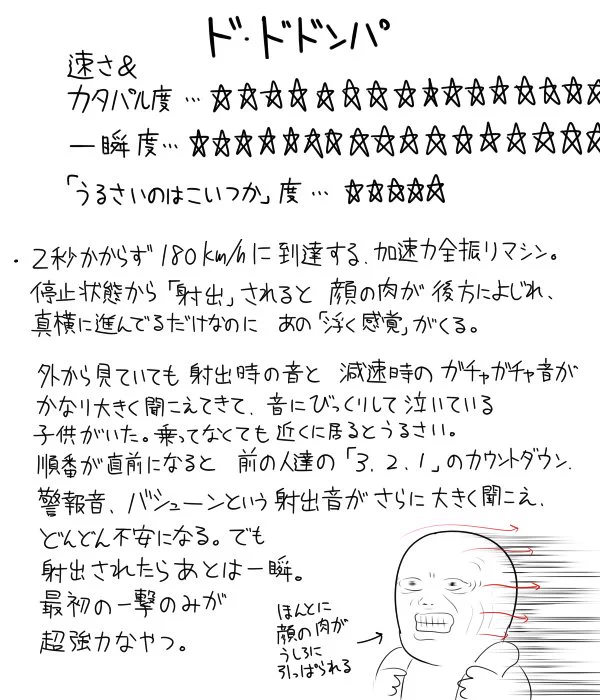 ド・ドドンパ
速さ&
カタパルト度…☆☆☆☆☆☆☆☆☆☆☆☆☆☆☆☆
一瞬度…☆☆☆☆☆☆☆☆☆☆☆☆☆☆☆☆☆
「うるさいのはこいつか」度…☆☆☆☆☆
・2秒かからず180km/hに到達する、加速力全振りマシン。
停止状態から「射出」されると 顔の肉が後方によじれ、
真横に進んでるだけなのに あの「浮く感覚」がくる。
外から見ていても射出時の音と 減速時のガチャガチャ音が
かなり大きく聞こえてきて、音にびっくりして泣いている
子供がいた。乗ってなくても近くに居るとうるさい。
順番が直前になると 前の人達の「3、2、1」のカウントダウン、
警報音、バシューンという射出音がさらに大きく聞こえ、
どんどん不安になる。でも
射出されたらあとは一瞬。
最初の一撃のみが
超強力なやつ。
ほんとに
顔の肉が
うしろに
引っぱられる